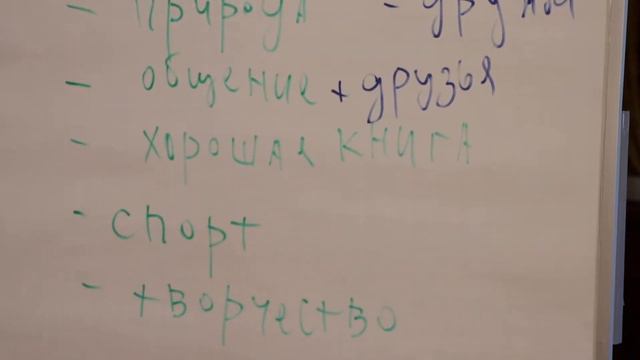 - природа
- общение + друзья
- хорошая книга
- спорт
- творчество